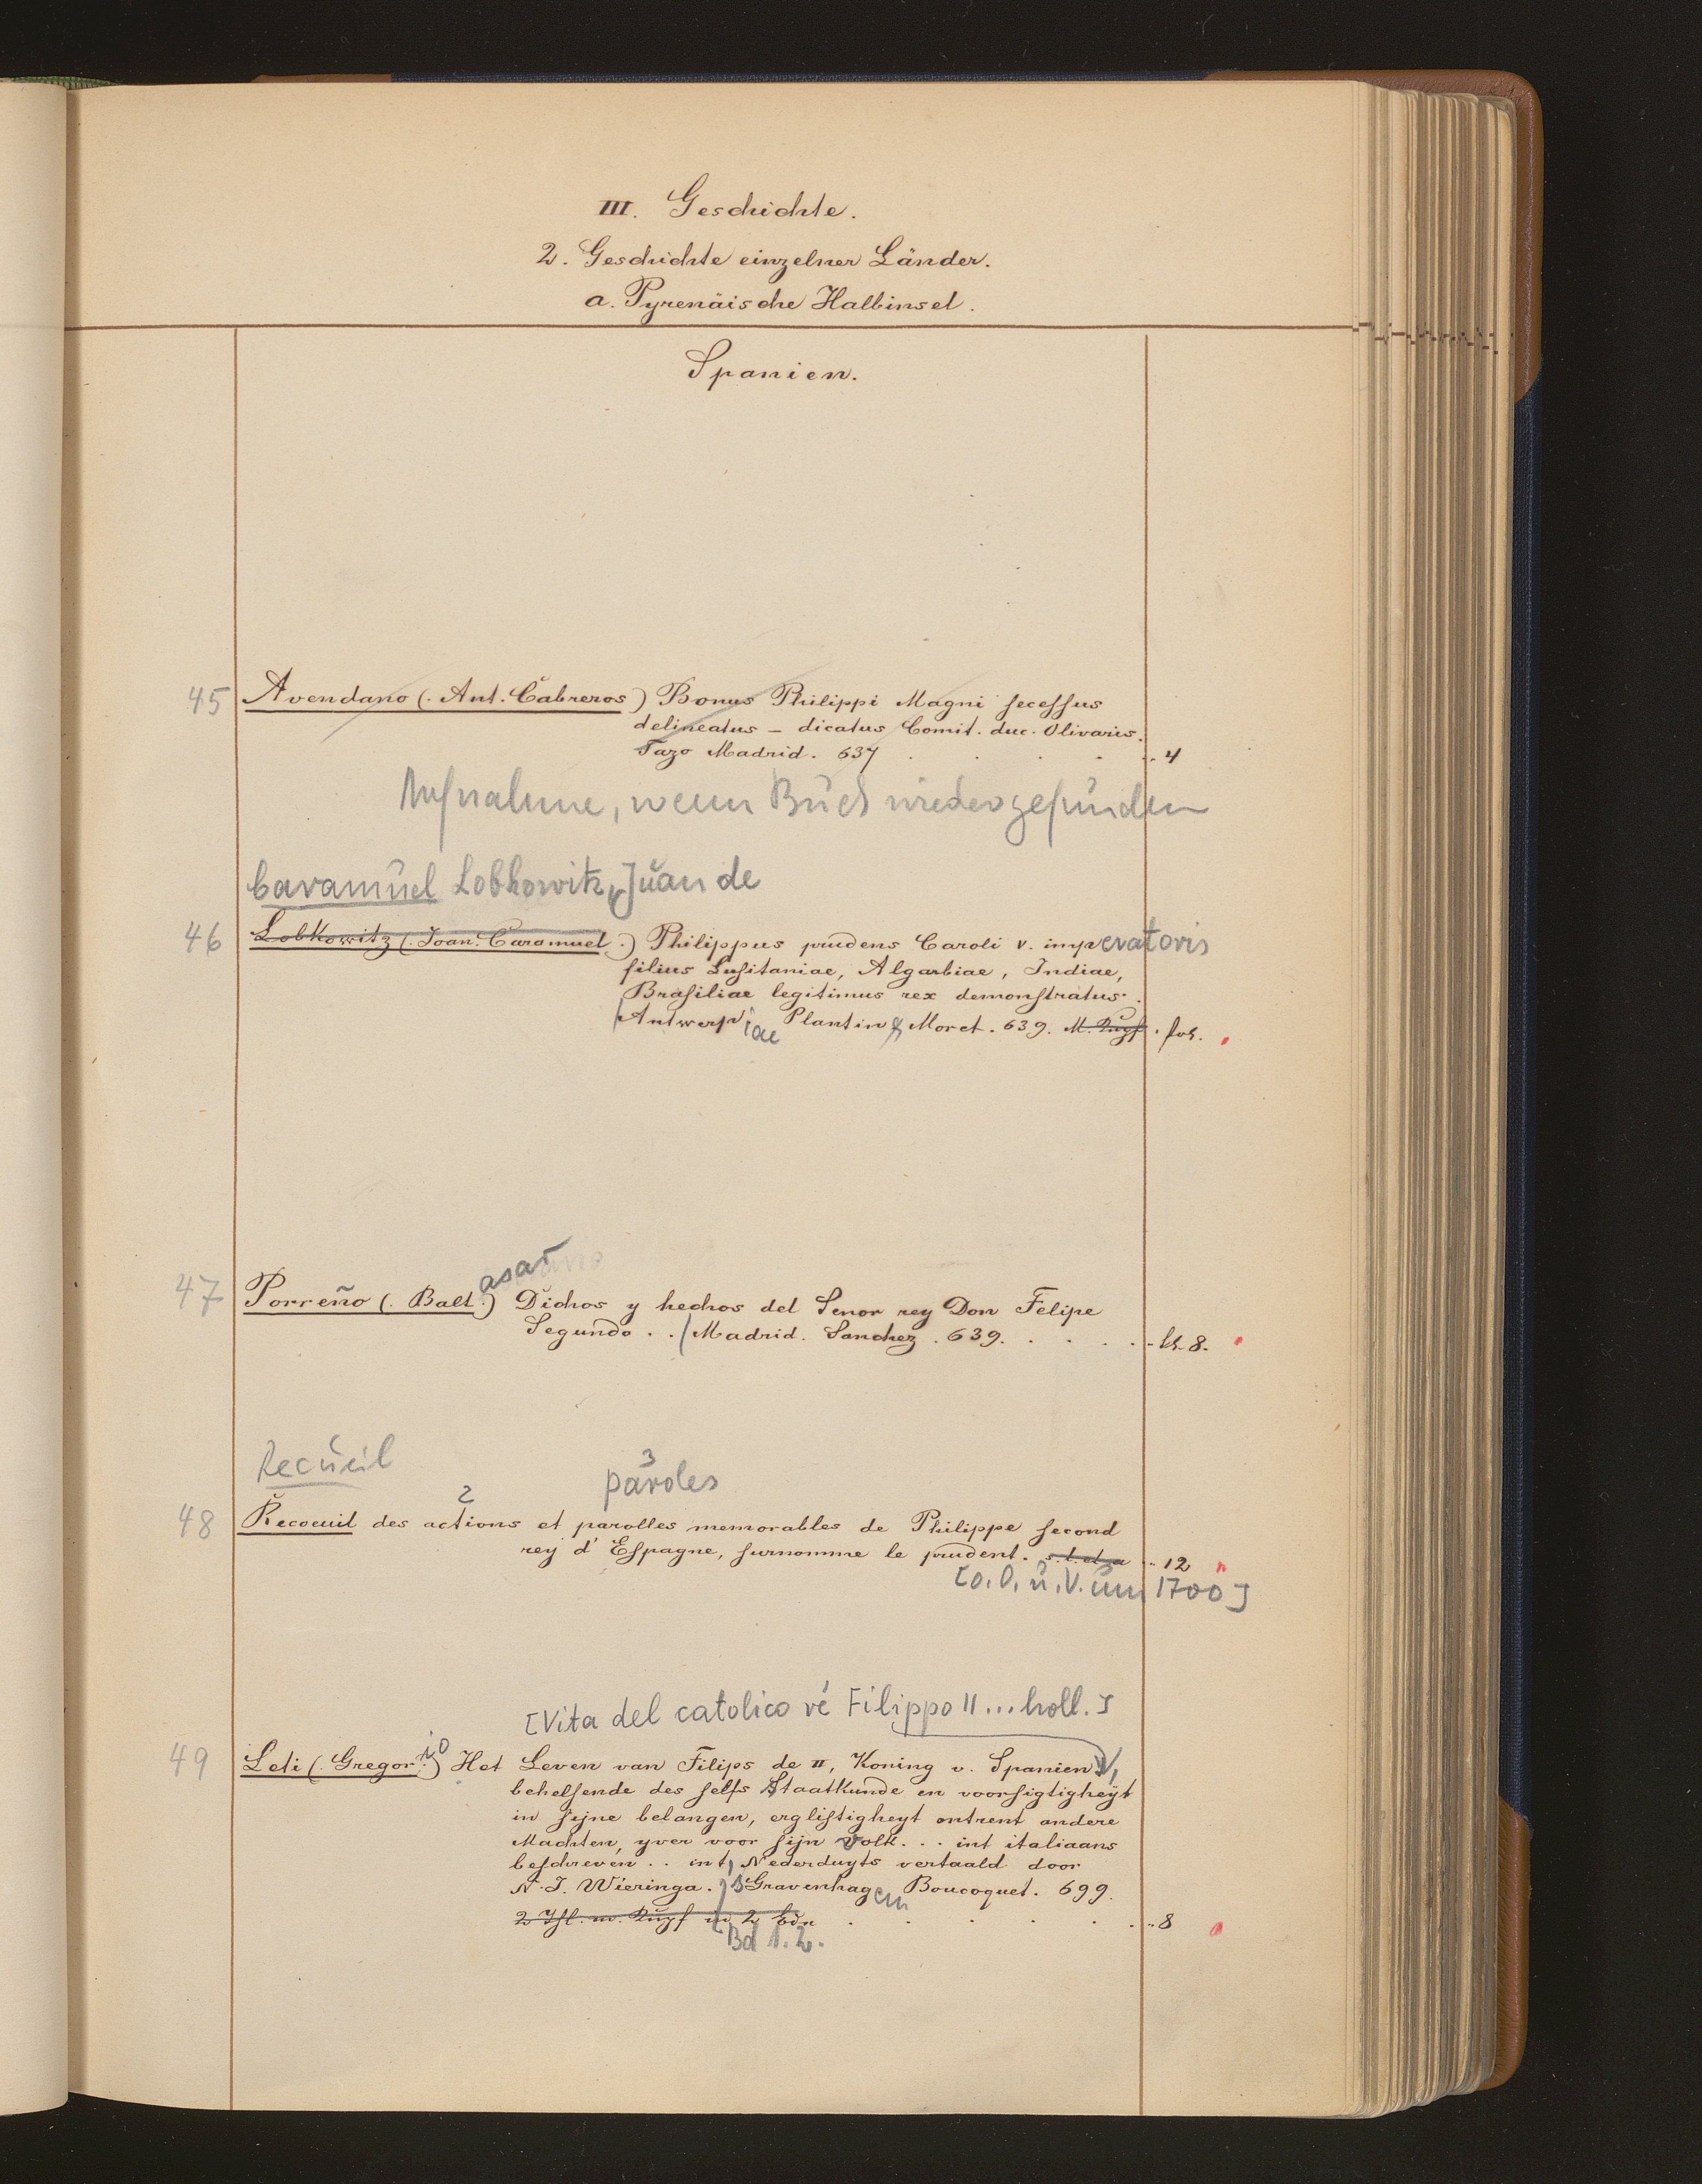 III. Geschichte.
2. Geschichte einzelner Länder.
a. Pyrenäische Halbinsel.
Spanien.
45 Avendano (. Ant. Cabreros) Bonus Philippi Magni secessus
delineatus – dicatus Comit. duc. Olivaris.
Fazo Madrid. 637 . . . . . . 4
Aufnahme, wenn Buch wiedergefunden
Caramuel Lobkowitz, Juan de
46 Lobkowitz (. Joan. Caramuel.) Philippus prudens Caroli V. imperatoris
filius Lusitaniae, Algarbiae, Indiae,
Brasiliae legitimus rex demonstratus.
Antwerpiae Plantin Moret. 639. M. Kupf. fol.
asar
47 Porreño (. Balt.) Dichos y hechos del Senor rey Don Felipe
Segundo . . Madrid. Sanchez. 639. . . . . . kl. 8.
Recueil
2 3
paroles
48 Recoeuil des actions et parolles memorables de Philippe second
rey d'Espagne, surnomme le prudent. s. l. et a . . 12
[o. O. u. V. um 1700]
[Vita del catolico ré Filippo II ... holl.]
49 Leti (. Gregorio) Het Leven van Filips de II, Koning v. Spanien,
behelsende des selfs Staatkunde en voorsigtigheyt
in sijne belangen, erglistigheyt ontrent andere
Machten, yver voor sijn Volk. . . int italiaans
beschreven . . int, Nederduyts vertaald door
N. J. Wieringa. s'Gravenhagen Boucoquet. 699.
2 Thl. m. Kupf in 2 Bdn . . . . . . 8
Bd 1. 2.